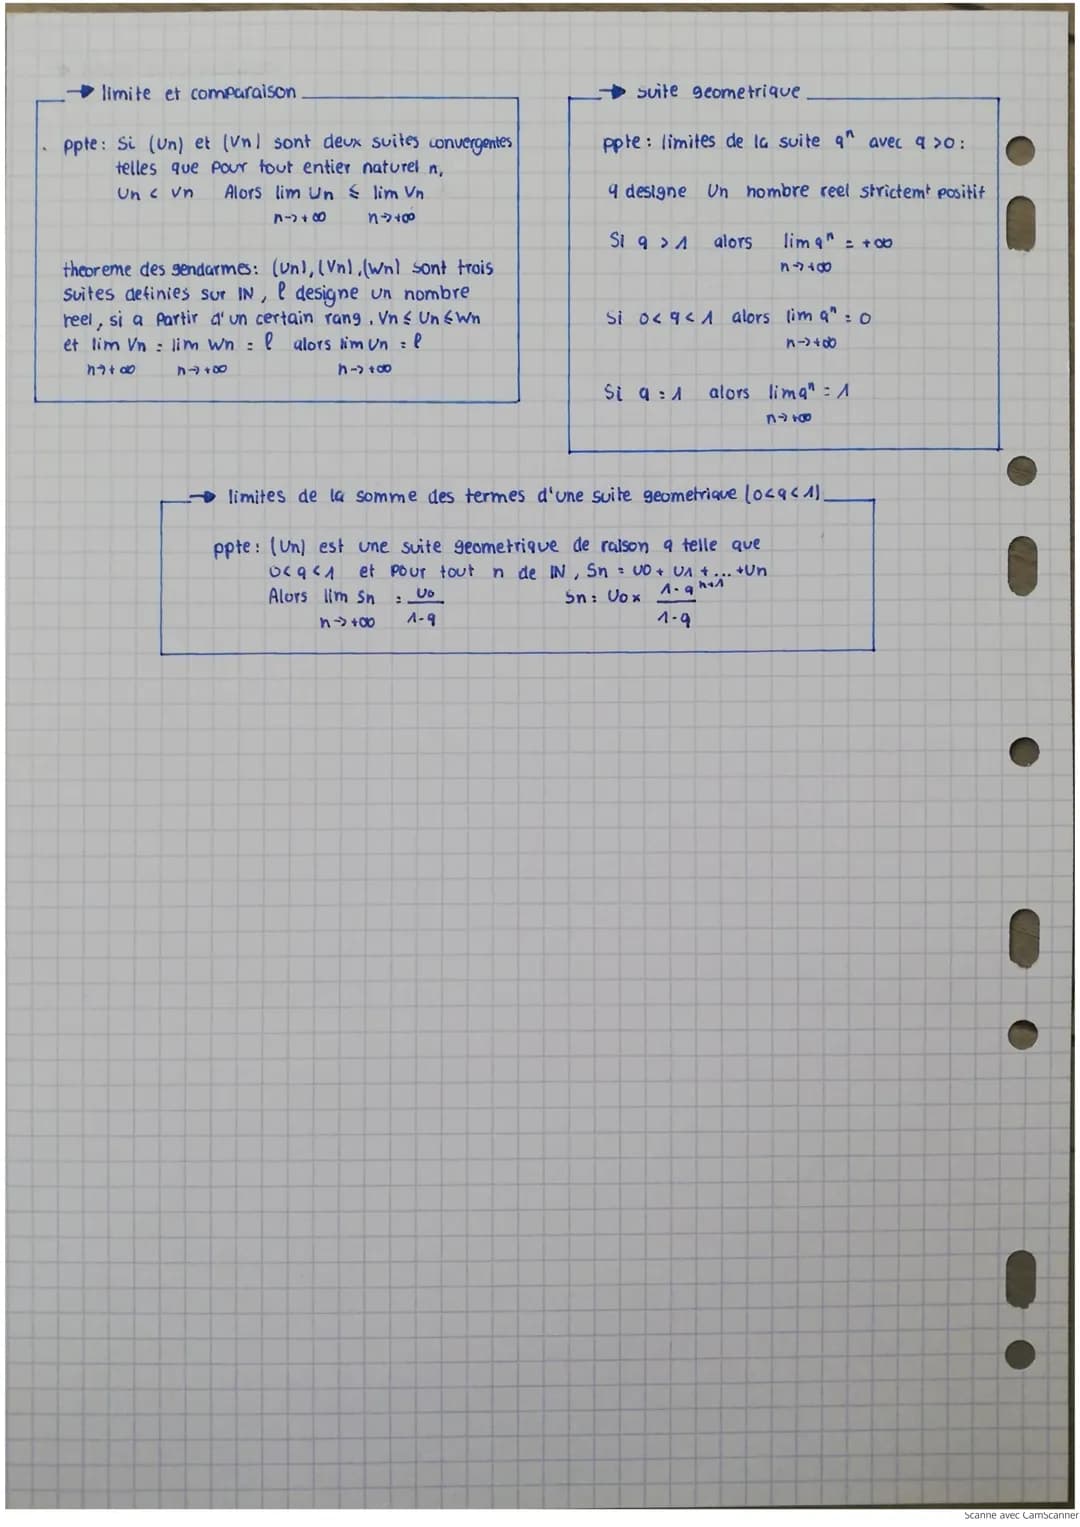 → limite et comparaison
ppte: Si (Un) et (Vn) sont deux suites convergentes
telles que pour tout entier naturel n,
Un < Vn Alors lim Un ≤ lim Vn
n→+∞ n→+∞
theoreme des gendarmes: (Un), (Vn), (Wn) sont trois
suites definies sur IN, ℓ designe un nombre
reel, si a partir d'un certain rang, Vn ≤ Un ≤ Wn
et lim Vn = lim Wn = ℓ alors lim Un = ℓ
n→+∞ n→+∞ n→+∞
→ suite geometrique
ppte: limites de la suite qⁿ avec q >0:
q designe Un nombre reel strictemt positif
Si q > 1 alors lim qⁿ = +∞
n→+∞
Si 0< q < 1 alors lim qⁿ = 0
n→+∞
Si q = 1 alors lim qⁿ = 1
n→+∞
→ limites de la somme des termes d'une suite geometrique (0<q<1)
ppte: (Un) est une suite geometrique de raison q telle que
0< q <1 et pour tout n de IN, Sn = U0 + U1 + ... +Un
Alors lim Sn = U0 Sn = U0 x 1-qⁿ⁺¹
n→+∞ 1-q 1-q
Scanné avec CamScanner